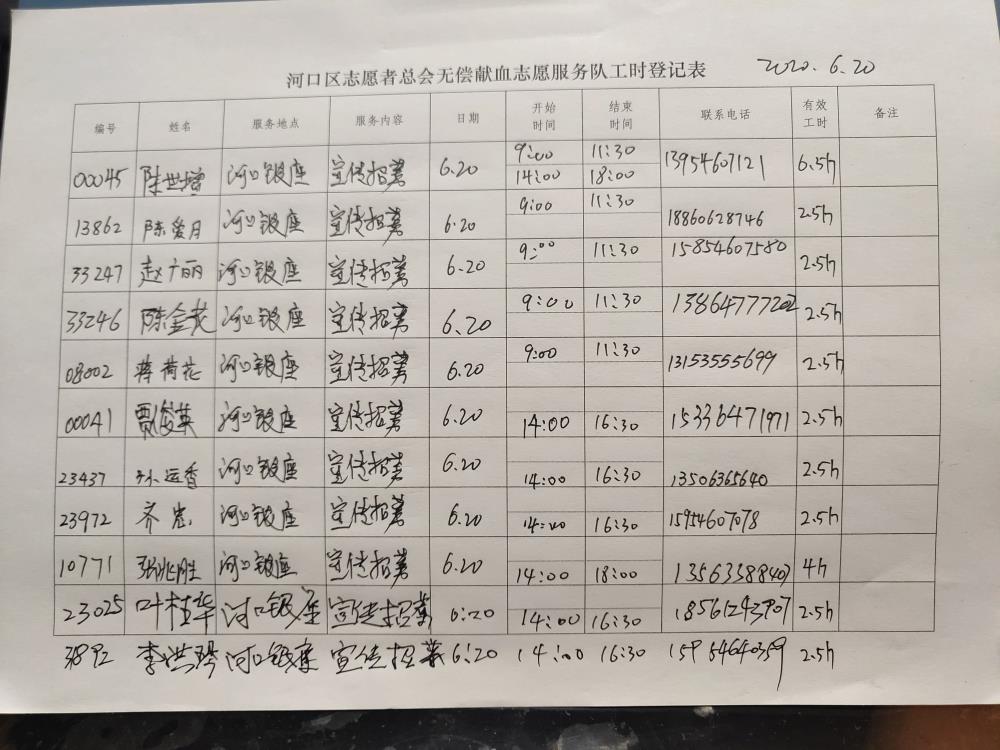 河口区志愿者总会无偿献血志愿服务队工时登记表 2020.6.20
编号 姓名 服务地点 服务内容 日期 开始时间 结束时间 联系电话 有效工时 备注
00045 陈世增 河口银座 宣传招募 6.20 9:00 11:30 13954607121 6.5h
14:00 18:00
13862 陈爱月 河口银座 宣传招募 6.20 9:00 11:30 18860628746 2.5h
33247 赵广丽 河口银座 宣传招募 6.20 9:00 11:30 15854607580 2.5h
33246 陈金花 河口银座 宣传招募 6.20 9:00 11:30 13864777202 2.5h
08002 蒋荷花 河口银座 宣传招募 6.20 9:00 11:30 13153555699 2.5h
00041 贾俊英 河口银座 宣传招募 6.20 14:00 16:30 15336471971 2.5h
23437 孙运香 河口银座 宣传招募 6.20 14:00 16:30 13506365640 2.5h
23972 齐 河口银座 宣传招募 6.20 14:00 16:30 15954607078 2.5h
10771 张兆胜 河口银座 宣传招募 6.20 14:00 18:00 13563388407 4h
23025 叶桂华 河口银座 宣传招募 6:20 14:00 16:30 18561243907 2.5h
李洪琴 河口银座 宣传招募 6:20 14:00 16:30 2.5h